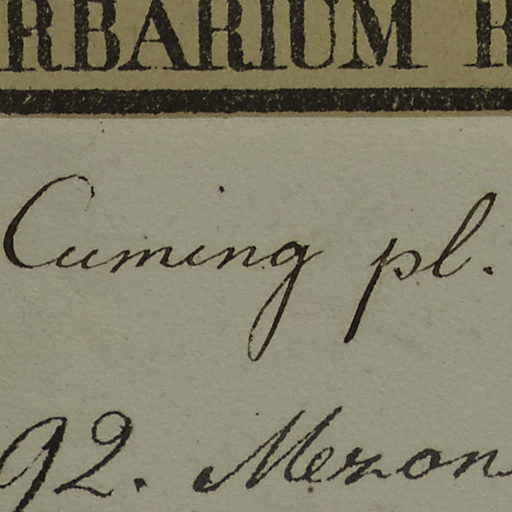 RBARIUM R
Cuming pl.
92. Mezon